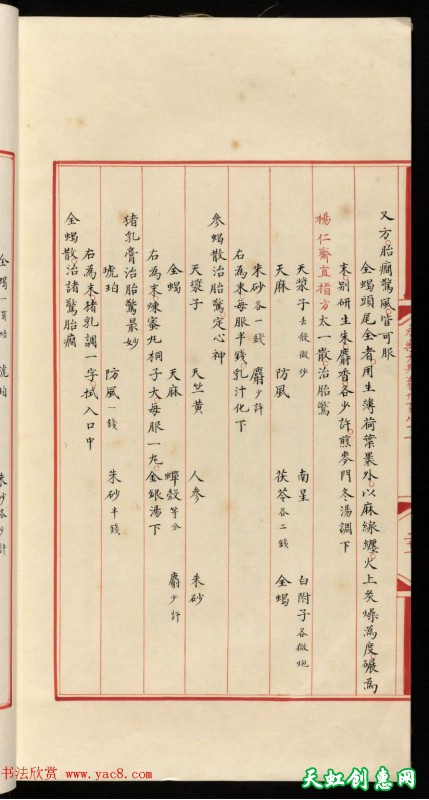 又方胎癇驚風皆可服
全蝎頭尾全者用生薄荷葉裹外以麻線纏火上炙燥為度碾為
末別研生朱麝香各少許煎麥門冬湯調下
楊仁齋直指方太一散治胎驚
天漿子去殼微炒 南星 白附子各微炮
天麻 防風 茯苓各二錢 全蝎
朱砂各一錢 麝少許
右為末每服半錢乳汁化下
參蝎散治胎驚定心神
天漿子 天竺黃 人參 朱砂
全蝎 天麻 蟬殼等分 麝少許
右為末煉蜜丸桐子大每服一丸金銀湯下
猪乳膏治胎驚最妙
琥珀 防風一錢 朱砂半錢
右為末猪乳調一字拭入口中
全蝎散治諸驚胎癇
全蝎一箇 琥珀 朱砂各少許
书法欣赏 www.yac8.com
天虹创惠网